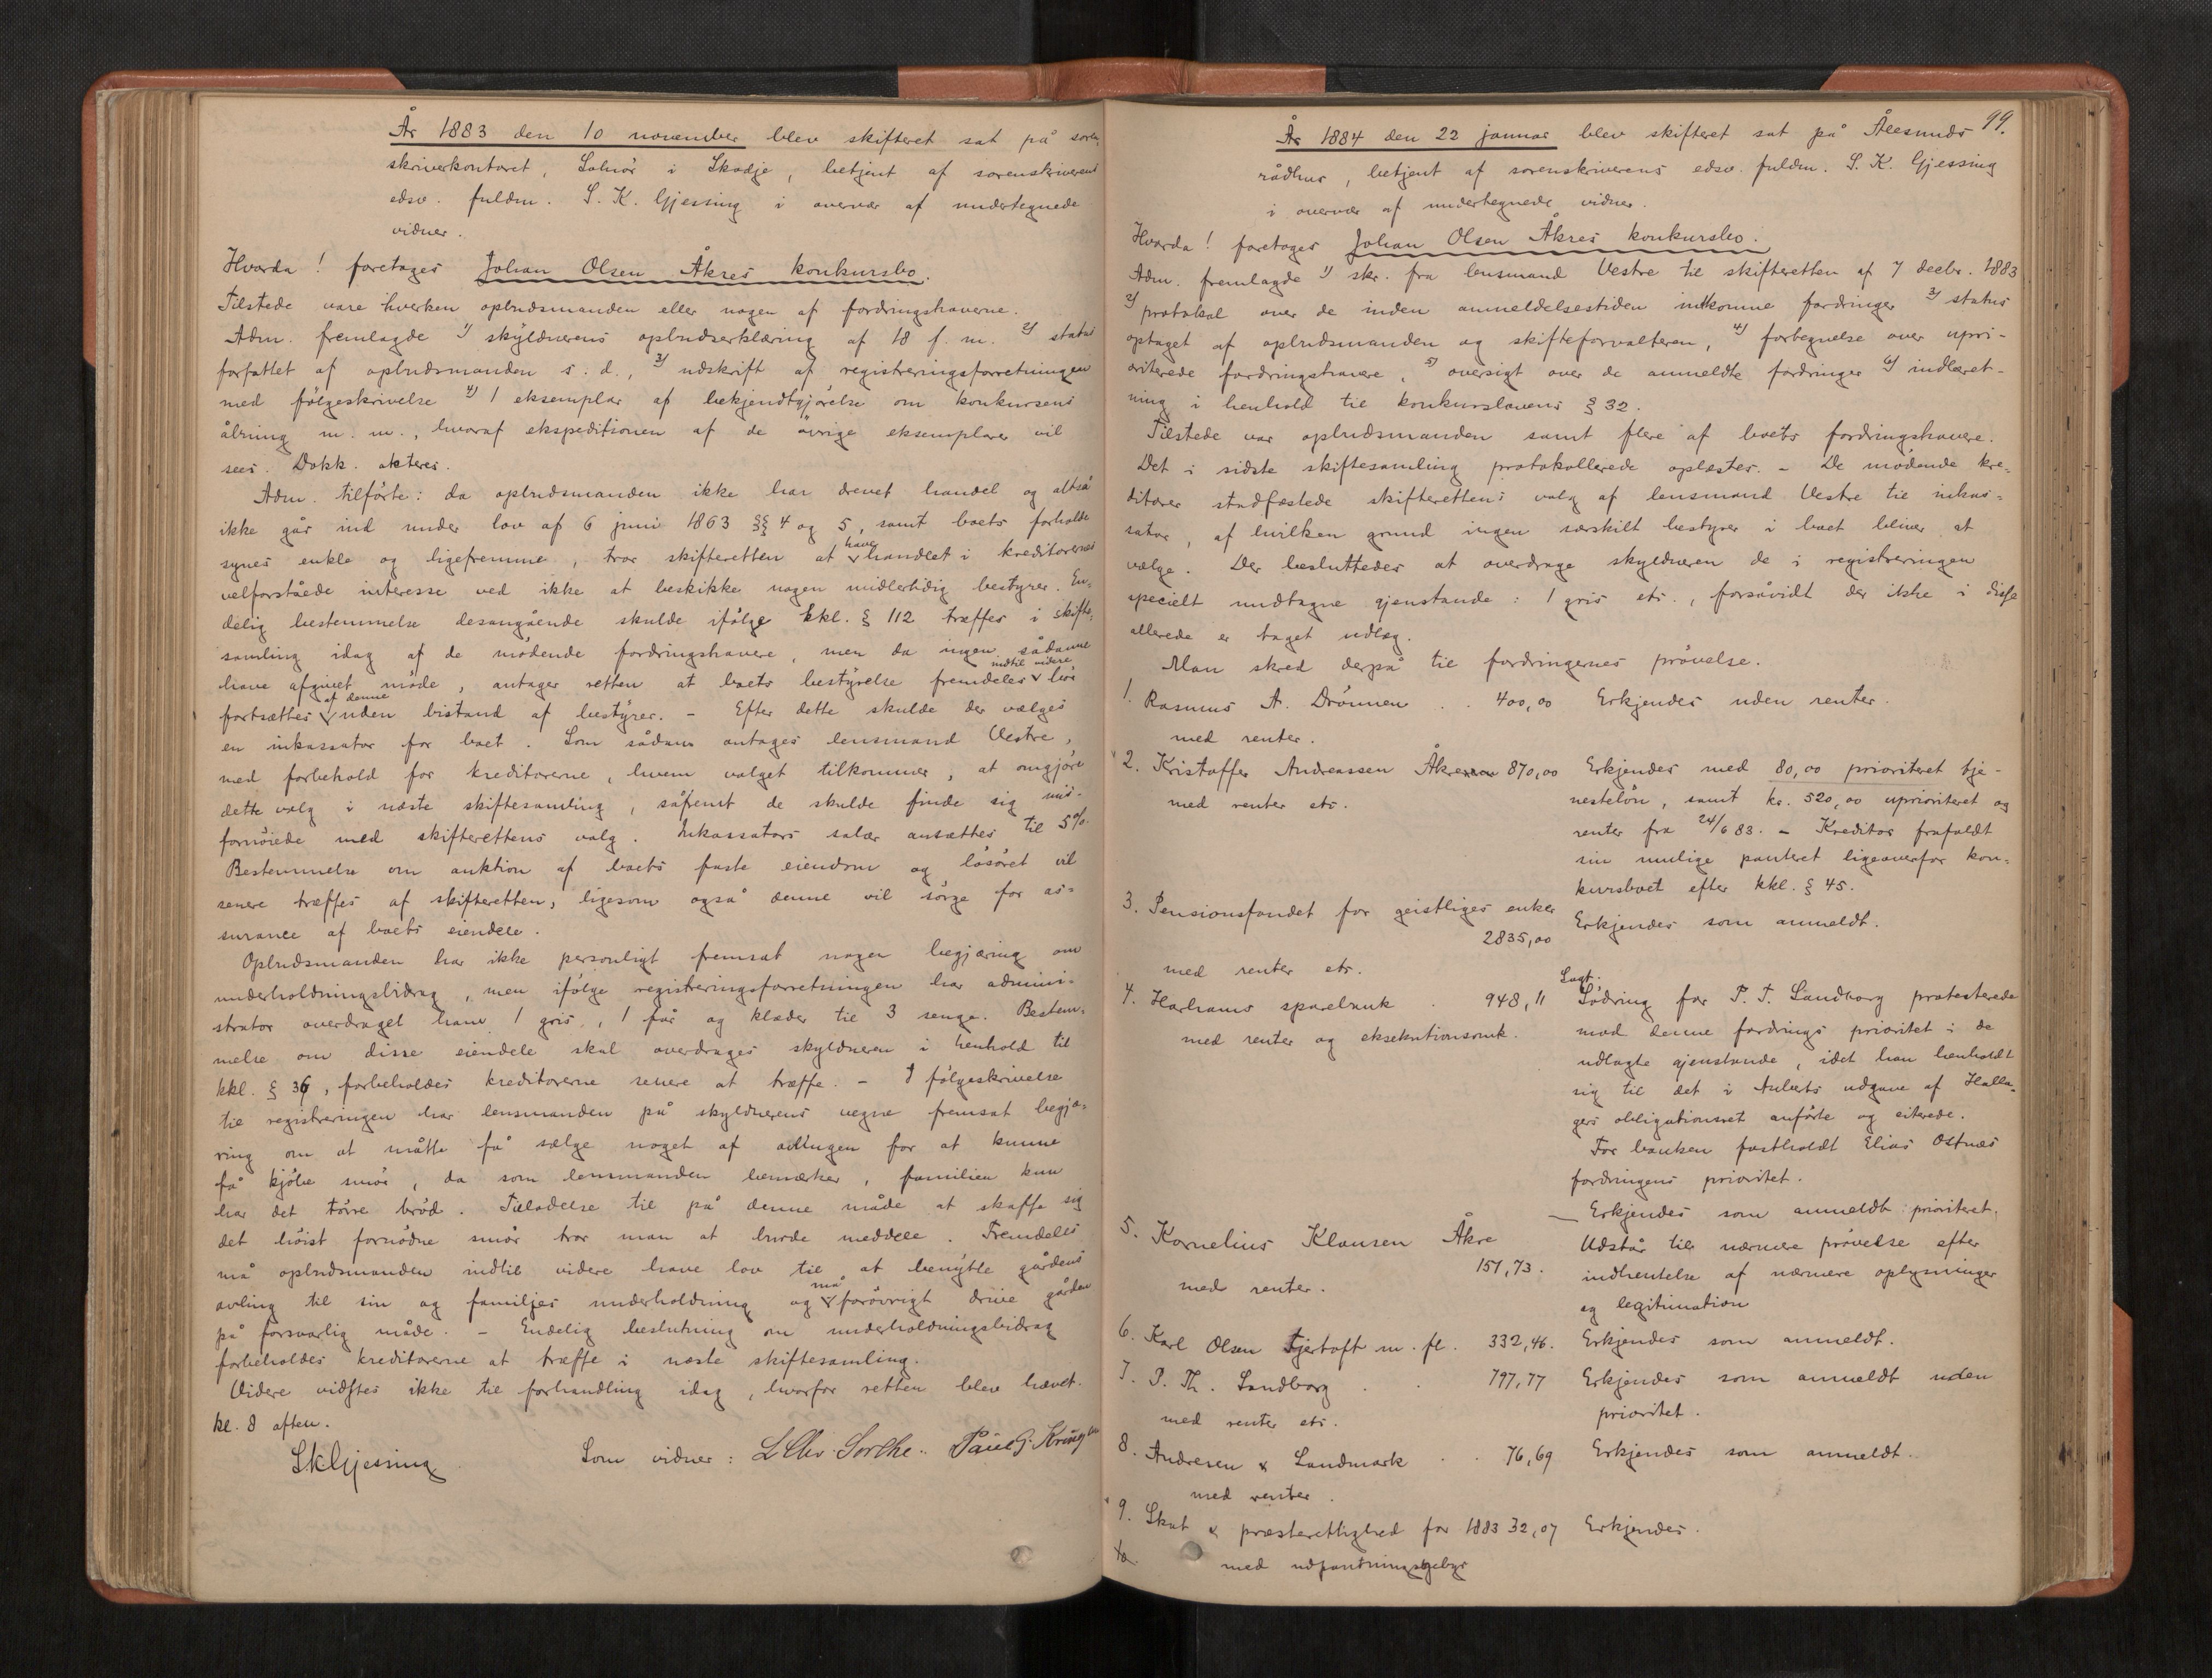 År 1883 den 10 november blev skifteret sat på soren-
skriverkontoret, Solnör i Skodje, betjent af sorenskriverens
edsv. fuldm. S. K. Gjessing i overvær af undertegnede
vidner.
Hvorda! foretoges Johan Olsen Åkres konkursbo.
Tilstede vare hverken opbudsmanden eller nogen af fordringshaverne.
Adm. fremlagde 1) skyldnerens opbudserklæring af 18 f. m. 2) status
forfattet af opbudsmanden s. d., 3) udskrift af registreringsforretningen
med fölgeskrivelse 4) 1 eksemplar af bekjendtgjörelse om konkursens
åbning m. m., hvoraf ekspeditionen af de övrige eksemplarer vil
sees. Dokk. akteres.
Adm. tilförte: da opbudsmanden ikke har drevet handel og altså
ikke går ind under lov af 6 juni 1863 §§ 4 og 5, samt boets forholde
synes enkle og ligefremme, tror skifteretten at have handlet i kreditorernes
velforståede interesse ved ikke at beskikke nogen midlertidig bestyrer. En-
delig bestemmelse desangående skulde ifölge kkl. § 112 træffes i skifte-
samling idag af de mödende fordringshavere, men da ingen sådanne
have afgivet möde, antager retten at boets bestyrelse fremdeles indtil videre bör
fortsættes af denne uden bistand af bestyrer. - Efter dette skulde der vælges
en inkassator for boet. Som sådan antages lensmand Vestre,
med forbehold for kreditorerne, hvem valget tilkommer, at omgjöre
dette valg i næste skiftesamling, såfremt de skulde finde sig mis-
fornöiede med skifterettens valg. Inkassators salær ansættes til 5%.
Bestemmelse om auktion af boets faste eiendom og lösöret vil
senere træffes af skifteretten, ligesom også denne vil sörge for as-
surance af boets eiendele.
Opbudsmanden har ikke personligt fremsat nogen begjæring om
underholdningsbidrag, men ifölge registreringsforretningen har admini-
strator overdraget ham 1 gris, 1 får og klæder til 3 senge. Bestem-
melse om disse eiendele skal overdrages skyldneren i henhold til
kkl. § 36, forbeholdes kreditorerne senere at træffe. - I fölgeskrivelse
til registreringen har lensmanden på skyldnerens vegne fremsat begjæ-
ring om at måtte få sælge noget af avlingen for at kunne
få kjöbe smör, da som lensmanden bemærker, familien kun
har det törre bröd. Tilladelse til på denne måde at skaffe sig
det höist fornödne smör tror man at burde meddele. Fremdeles
må opbudsmanden indtil videre have lov til at benytte gårdens
avling til sin og familjes underholdning og må forövrigt drive gården
på forsvarlig måde. - Endelig beslutning om underholdningsbidrag
forbeholdes kreditorerne at træffe i næste skiftesamling.
Videre vidstes ikke til forhandling idag, hvorfor retten blev hævet
kl. 8 aften.
SKGjessing Som vidner: L Chr. Sorthe. Paul G.
99.
År 1884 den 22 januar blev skifteret sat på Ålesunds
rådhus, betjent af sorenskriverens edsv. fuldm. S. K. Gjessing
i overvær af undertegnede vidner.
Hvorda! foretoges Johan Olsen Åkres konkursbo.
Adm. fremlagde 1) skr. fra lensmand Vestre til skifteretten af 7 decbr. 1883
2) protokol over de inden anmeldelsestiden indkomne fordringer 3) status
optaget af opbudsmanden og skifteforvalteren, 4) fortegnelse over upri-
oriterede fordringshavere, 5) oversigt over de anmeldte fordringer 6) indberet-
ning i henhold til konkurslovens § 32.
Tilstede var opbudsmanden samt flere af boets fordringshavere.
Det i sidste skiftesamling protokollerede oplæstes. - De mödende kre-
ditorer stadfæstede skifterettens valg af lensmand Vestre til inkas-
sator, af hvilken grund ingen særskilt bestyrer i boet bliver at
vælge. Der besluttedes at overdrage skyldneren de i registreringen
specielt undtagne gjenstande: 1 gris etc., forsåvidt der ikke i disse
allerede er taget udlæg.
Man skred derpå til fordringernes prövelse.
1. Rasmus A. Drönnen . . 400,00 Erkjendes uden renter.
med renter.
2. Kristoffer Andreassen Åkre 870,00 Erkjendes med 80,00 prioriteret tje-
med renter etc. nestelön, samt kr. 520,00 uprioriteret og
renter fra 24/6 83. - Kreditor frafaldt
sin mulige panteret ligeoverfor kon-
kursboet efter kkl. § 45.
3. Pensionsfondet for geistliges enker Erkjendes som anmeldt.
2835,00
med renter etc.
4. Harhams sparebank . 948,11 Sagf. Lödring for P. T. Sandborg protesterede
med renter og eksekutionsomk. mod denne fordrings prioritet i de
udlagte gjenstande, idet han henholdt
sig til det i Auberts udgave af Halla-
gers obligationsret anförte og citerede.
For banken fastholdt Elias Ostnæs
fordringens prioritet.
— Erkjendes som anmeldt: prioriteret.
5. Kornelius Klausen Åkre Udstår til nærmere prövelse efter
151,73. indhentelse af nærmere oplysninger
med renter. og legitimation
6. Karl Olsen Fjertoft m. fl. 332,46. Erkjendes som anmeldt.
7. P. Th. Sandborg . . 797,77 Erkjendes som anmeldt uden
med renter etc. prioritet.
8. Andresen & Landmark . . 76,69 Erkjendes som anmeldt.
med renter.
9. Skat & præsterettighed for 1883 32,07 Erkjendes.
med udpantningsgebyr